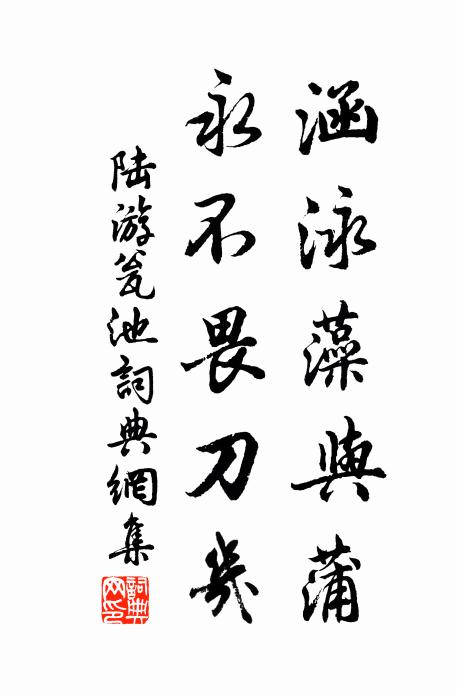 涵泳藻與蒲
永不畏刀几
陆游瓮池詞典網集
詞典网印